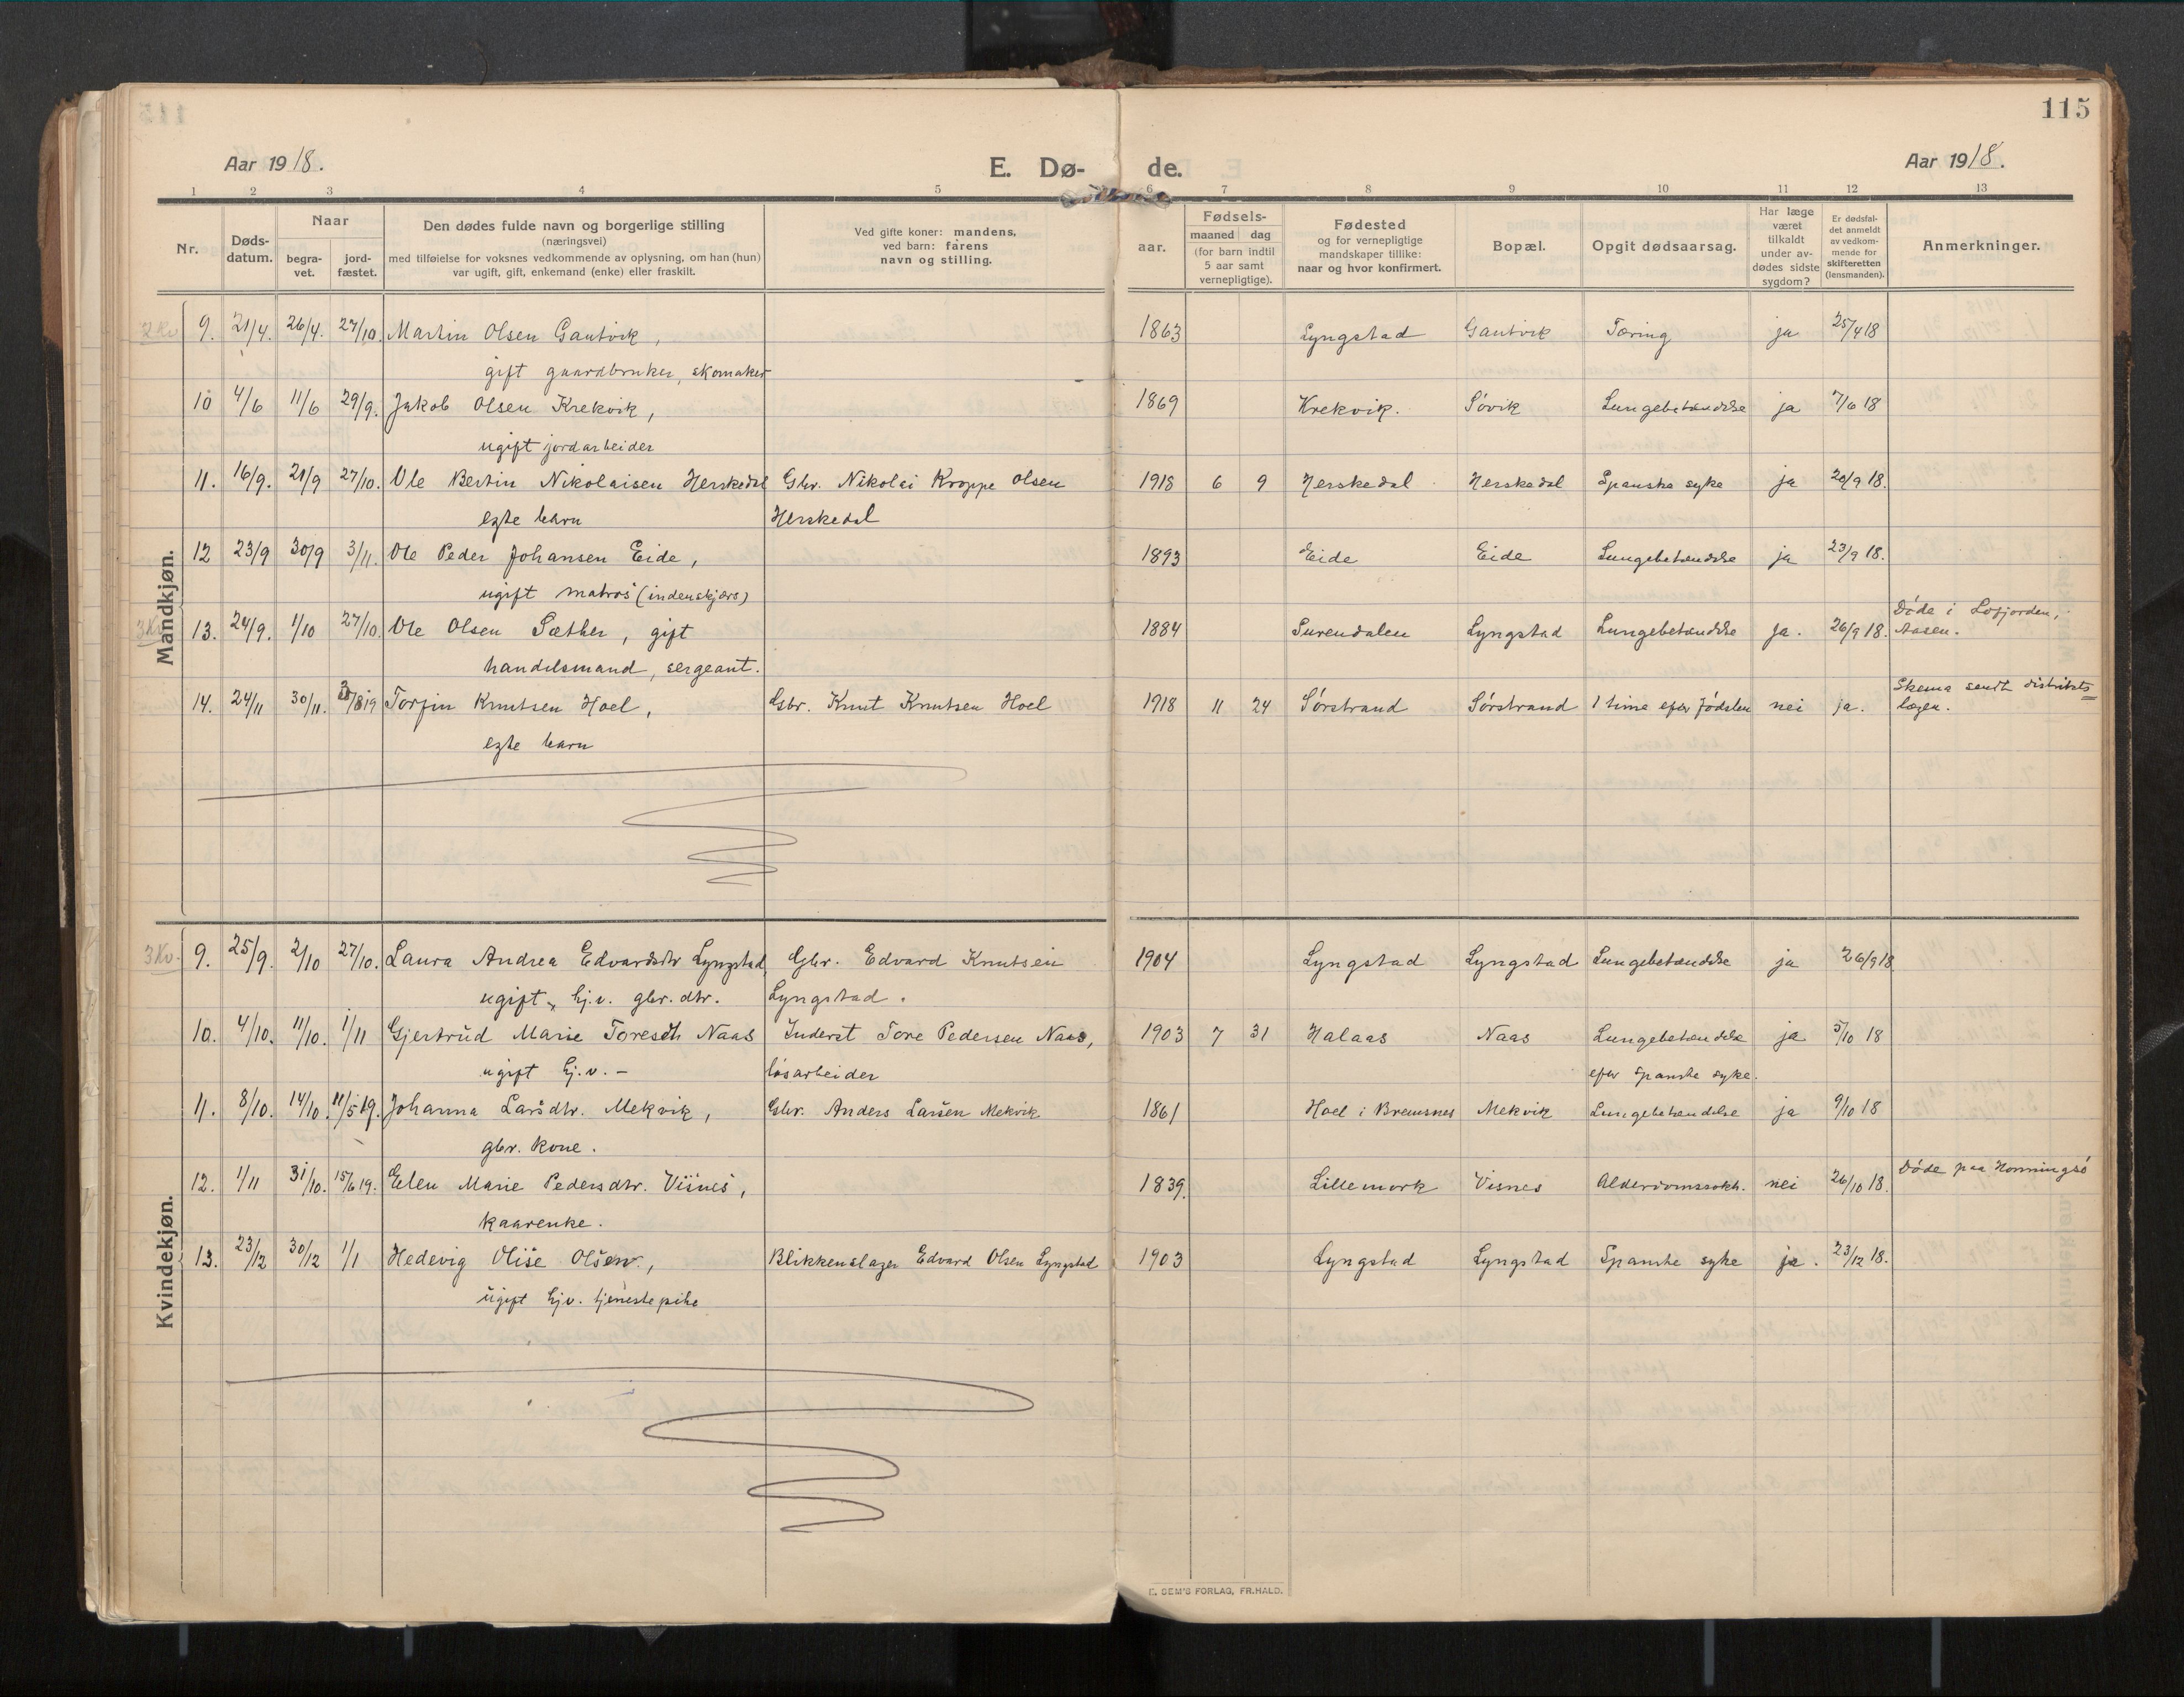 115
Aar 1918.
E. Dø-
de.
Aar 1918.
1 2 3 4 5 6 7 8 9 10 11 12 13
Nr.
Døds-
datum.
Naar
begra-
vet.
jord-
fæstet.
Den dødes fulde navn og borgerlige stilling
(næringsvei)
med tilføielse for voksnes vedkommende av oplysning, om han (hun)
var ugift, gift, enkemand (enke) eller fraskilt.
Ved gifte koner: mandens,
ved barn: farens
navn og stilling.
Fødsels-
aar.
maaned dag
(for barn indtil
5 aar samt
vernepligtige).
Fødested
og for vernepligtige
mandskaper tillike:
naar og hvor konfirmert.
Bopæl.
Opgit dødsaarsag.
Har læge
været
tilkaldt
under av-
dødes sidste
sygdom?
Er dødsfal-
det anmeldt
av vedkom-
mende for
skifteretten
(lensmanden).
Anmerkninger.
Mandkjøn.
2 Kv 9. 21/4. 26/4. 27/10. Martin Olsen Gautvik, 1863 Lyngstad Gautvik Tæring ja 25/4 18
gift gaardbruker, skomaker
10 4/6 11/6 29/9. Jakob Olsen Krekvik, 1869 Krekvik. Søvik Lungebetændelse ja 7/6 18
ugift jordarbeider
11. 16/9. 21/9 27/10. Ole Bertin Nikolaisen Herskedal Gbr. Nikolai Kroppe Olsen 1918 6 9 Herskedal Herskedal Spanske syke ja 20/9 18.
egte barn Herskedal
12 23/9 30/9 3/11. Ole Peder Johansen Eide, 1893 Eide Eide Lungebetændelse ja 23/9 18.
ugift matros (indenskjærs)
3 Kv 13. 24/9. 1/10 27/10. Ole Olsen Sæther, gift 1884 Surendalen Lyngstad Lungebetændelse ja. 26/9 18. Døde i Lofjorden,
handelsmand, sergeant. Aasen.
14. 24/11 30/11. /8 19 Torfin Knutsen Hoel, Gbr. Knut Knutsen Hoel 1918 11 24 Sørstrand Sørstrand 1 time efter fødslen nei ja. Skema sendt distrikts-
egte barn lægen.
Kvindekjøn.
3 Kv. 9. 25/9. 2/10 27/10. Laura Andrea Edvardsdtr Lyngstad Gbr. Edvard Knutsen 1904 Lyngstad Lyngstad Lungebetændelse ja 26/9 18
ugift, hj.v. gbr. dtr. Lyngstad.
10. 4/10. 11/10. 1/11 Gjertrud Marie Toresdtr Naas Inderst Tore Pedersen Naas, 1903 7 31 Halaas Naas Lungebetændelse ja 5/10 18
ugift hj.v. – løsarbeider efter Spanske syke.
11. 8/10. 14/10. 11/5 19. Johanna Larsdtr. Mekvik, Gbr. Anders Larsen Mekvik 1861 Hoel i Bremsnes Mekvik Lungebetændelse ja 9/10 18
gbr. kone.
12. 1/11 31/10. 15/6 19. Elen Marie Pedersdtr. Visnes, 1839. Lillemork Visnes Alderdomssvakh. nei 26/10 18. Døde paa Honningsø
kaarenke.
13. 23/12 30/12 1/1 Hedevig Olise Olsen, Blikkenslager Edvard Olsen Lyngstad 1903 Lyngstad Lyngstad Spanske syke ja. 23/12 18.
ugift hj.v. tjenestepike
E. SEM'S FORLAG, FR.HALD.